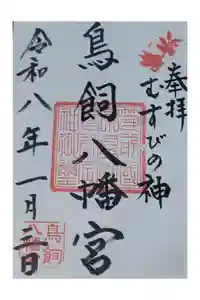 奉拝
むすびの神
鳥飼八幡宮
令和八年一月三日
鳥飼
八幡